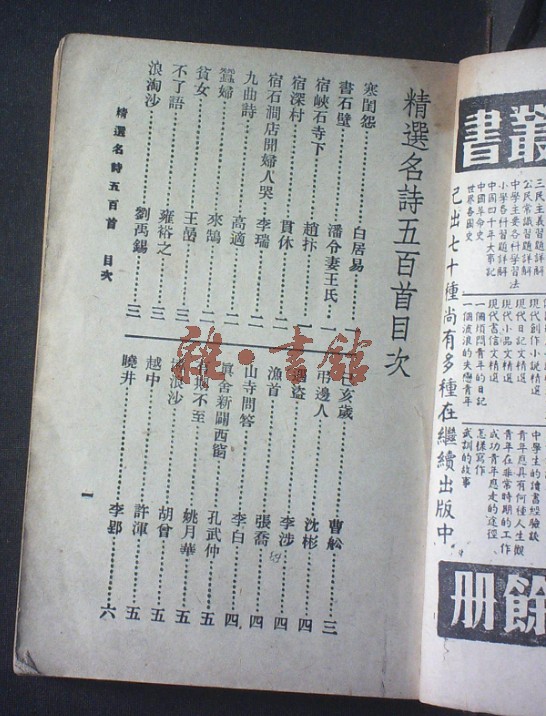 叢書
三民主義習題詳解
公民常識習題詳解
中學主要各科學習法
小學各科習題詳解
中國四十年大事記
中國革命史
世界各國史
現代創作小說精選
現代日記文精選
現代小品文精選
現代書信文精選
一個煩悶青年的日記
一個波浪的失戀青年
中學生的讀書經驗談
青年應具有何種人生觀
青年在非常時期的工作
成功青年應走的途徑
怎樣寫作
武訓的故事
已出七十種尚有多種在繼續出版中
餘册
精選名詩五百首目次
寒閨怨 白居易 一
書石壁 潘令妻王氏 一
宿峽石寺下 趙抃 一
宿深村 貫休 一
宿石澗店聞婦人哭 李瑞 二
九曲詩 高適 二
蠶婦 來鵠 二
貧女 王嵒 三
不了語 雍裕之 三
浪淘沙 劉禹錫 三
己亥歲 曹松 三
弔邊人 沈彬 四
遇盜 李涉 四
漁首 張喬 四
山寺問答 李白 四
舍新闢西窗 孔武仲 五
期不至 姚月華 五
浪沙 胡曾 五
越中 許渾 五
曉井 李郢 六
精選名詩五百首 目次
一
雅·書館